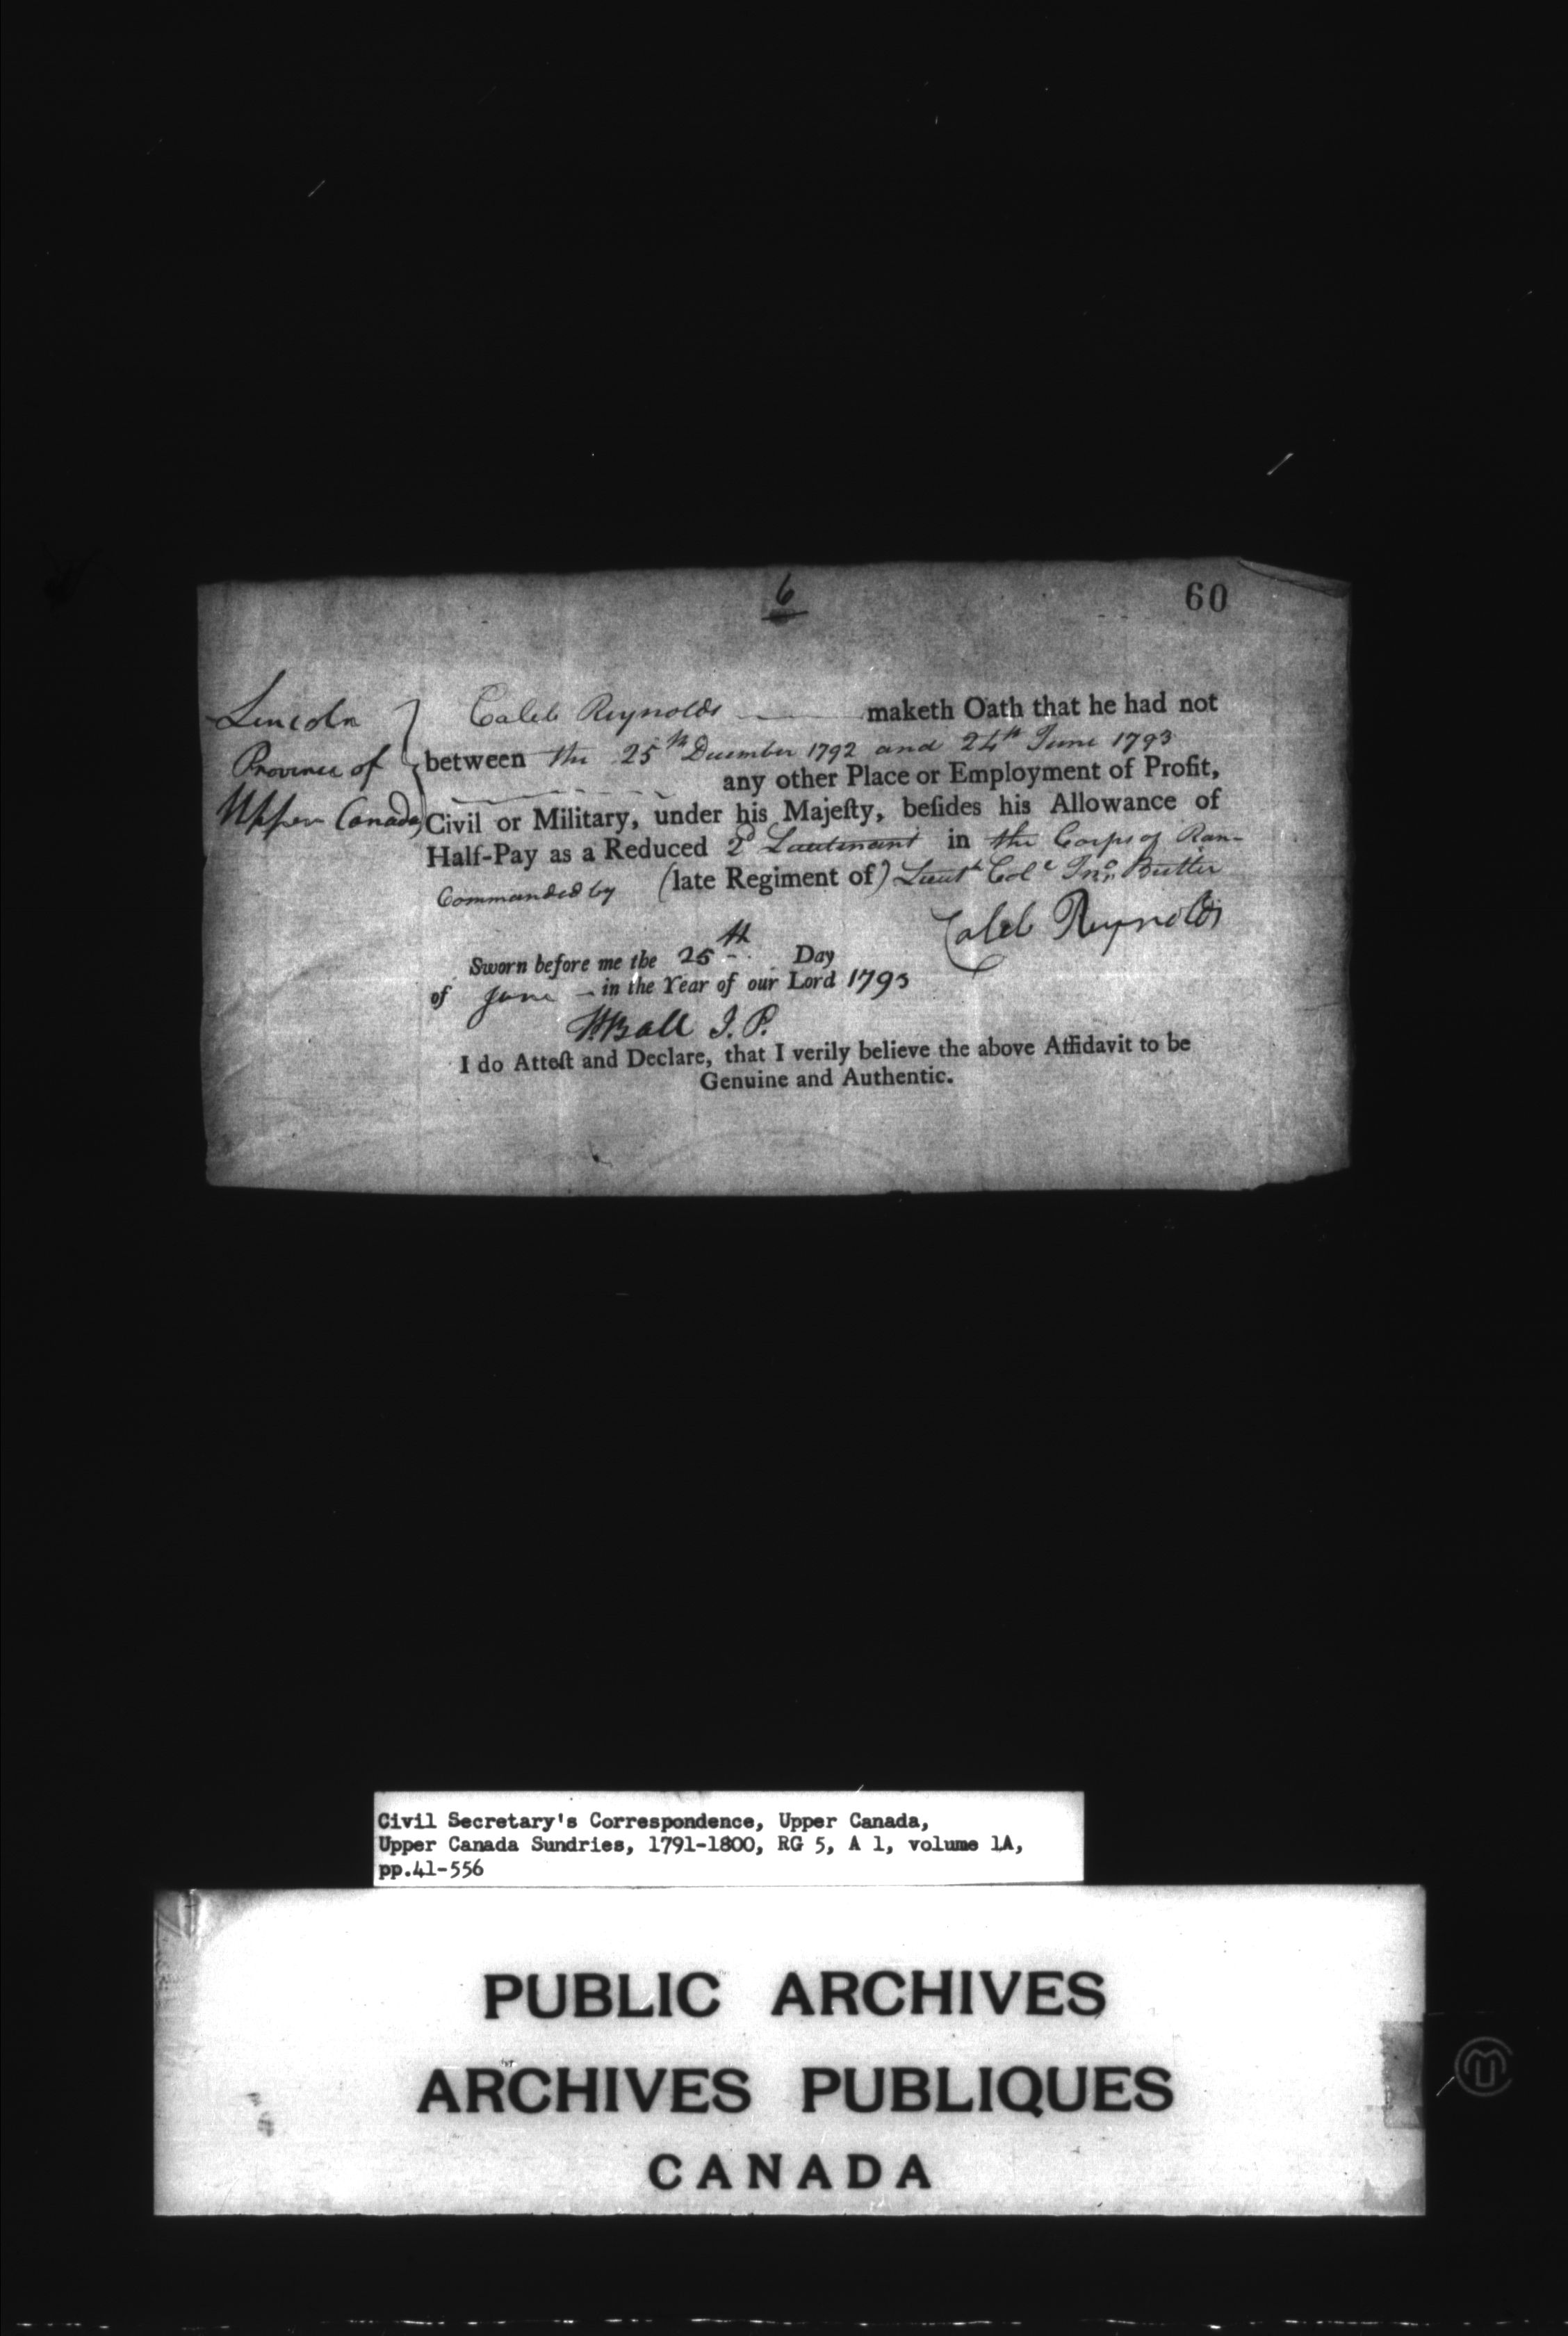 6
60
Lincoln
Province of
Upper Canada
Caleb Reynolds maketh Oath that he had not
between the 25th December 1792 and 24th June 1793
any other Place or Employment of Profit,
Civil or Military, under his Majeſty, beſides his Allowance of
Half-Pay as a Reduced 2d Lieutenant in the Corps of Ran-
Commanded by (late Regiment of) Lieut Col Jno. Butler
Caleb Reynolds
Sworn before me the 25th Day
of June - in the Year of our Lord 1793
Ball J.P.
I do Atteſt and Declare, that I verily believe the above Affidavit to be
Genuine and Authentic.
Civil Secretary's Correspondence, Upper Canada,
Upper Canada Sundries, 1791-1800, RG 5, A 1, volume 1A,
pp.41-556
PUBLIC ARCHIVES
ARCHIVES PUBLIQUES
CANADA